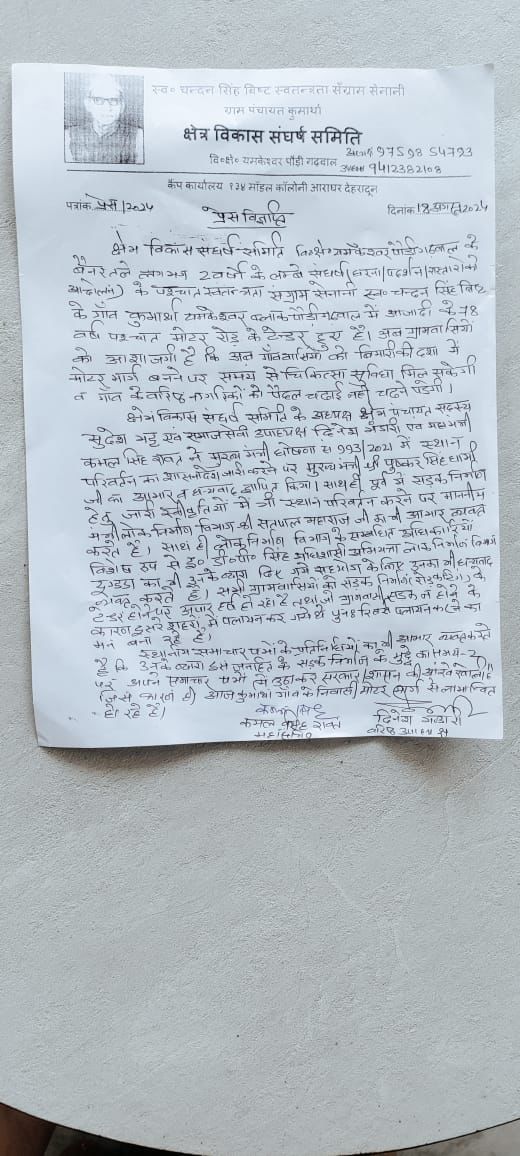 स्व० चन्दन सिंह बिष्ट स्वतन्त्रता सँग्राम सेनानी
ग्राम पंचायत कुमार्था
क्षेत्र विकास संघर्ष समिति
वि०क्षे० यमकेश्वर पौंडी गढ़वाल
अध्यक्ष 9759854793
9412382108
कैंप कार्यालय १२४ मॉडल कॉलोनी आराघर देहरादून
पत्रांक प्रेस/2024 दिनांक 18 अगस्त 2024
प्रेस विज्ञप्ति
क्षेत्र विकास संघर्ष समिति वि०क्षे० यमकेश्वर पौड़ी गढ़वाल के
बैनर तले लगभग 2 वर्षों के लम्बे संघर्ष (धरना/प्रदर्शन/रास्तारोको
आन्दोलन) के पश्चात स्वतन्त्रता संग्राम सेनानी स्व० चन्दन सिंह बिष्ट
के गाँव कुमार्था यमकेश्वर ब्लाक पौडी गढवाल में आजादी के 78
वर्ष पश्चात मोटर रोड़ के टेन्डर हुए है। अब ग्रामवासियों
को आशा जगी है कि अब गाँववासियों को बिमारी की दशा में
मोटर मार्ग बनने पर समय से चिकित्सा सुविधा मिल सकेगी
व गाँव के वरिष्ठ नागरिकों को पैदल चढाई नहीं चढने पडेगी।
क्षेत्र विकास संघर्ष समिति के अध्यक्ष क्षेत्र पंचायत सदस्य
सुदेश भट्ट एवं समाजसेवी उपाध्यक्ष दिनेश भंडारी एवं महामंत्री
कमल सिंह रावत ने मुख्यमंत्री घोषणा स० 993/2021 में स्थान
परिवर्तन का शासनादेश जारी करने पर मुख्यमंत्री श्री पुष्कर सिंह धामी
जी का आभार व धन्यवाद ज्ञापित किया। साथ ही पूर्व में सड़क निर्माण
हेतु जारी स्वीकृतियों में भी स्थान परिवर्तन करने पर माननीय
मंत्री लोक निर्माण विभाग श्री सतपाल महाराज जी का भी आभार व्यक्त
करते है। साथ ही लोक निर्माण विभाग के सम्बन्धित अधिकारियों
विशेष रूप से ई० डी०पी० सिंह अधिशासी अभियन्ता लोक निर्माण विभाग
दुगड्डा का भी उनके द्वारा दिए गये सहयोग के लिए उनका भी धन्यवाद
व्यक्त करते है। सभी ग्रामवासियों को सड़क निर्माण के
टेन्डर होने पर अपार हर्ष हो रहा है तथा जो ग्रामवासी सड़क न होने के
कारण दूसरे शहरों में पलायन कर गये थे पुनः रिवर्स पलायन करने का
मन बना रहे हैं।
स्थानीय समाचार पत्रों के प्रतिनिधियों का भी आभार व्यक्त करते
है कि उनके द्वारा इस जनहित के सड़क निर्माण के मुद्दे को समय-2
पर अपने समाचार पत्रों में उठाकर सरकार/शासन की आंखे खोली
जिस कारण ही आज कुमार्था गाँव के निवासी मोटर मार्ग से लाभान्वित
हो रहे हैं।
कमल सिंह रावत दिनेश भंडारी
महामंत्री वरिष्ठ उपाध्यक्ष